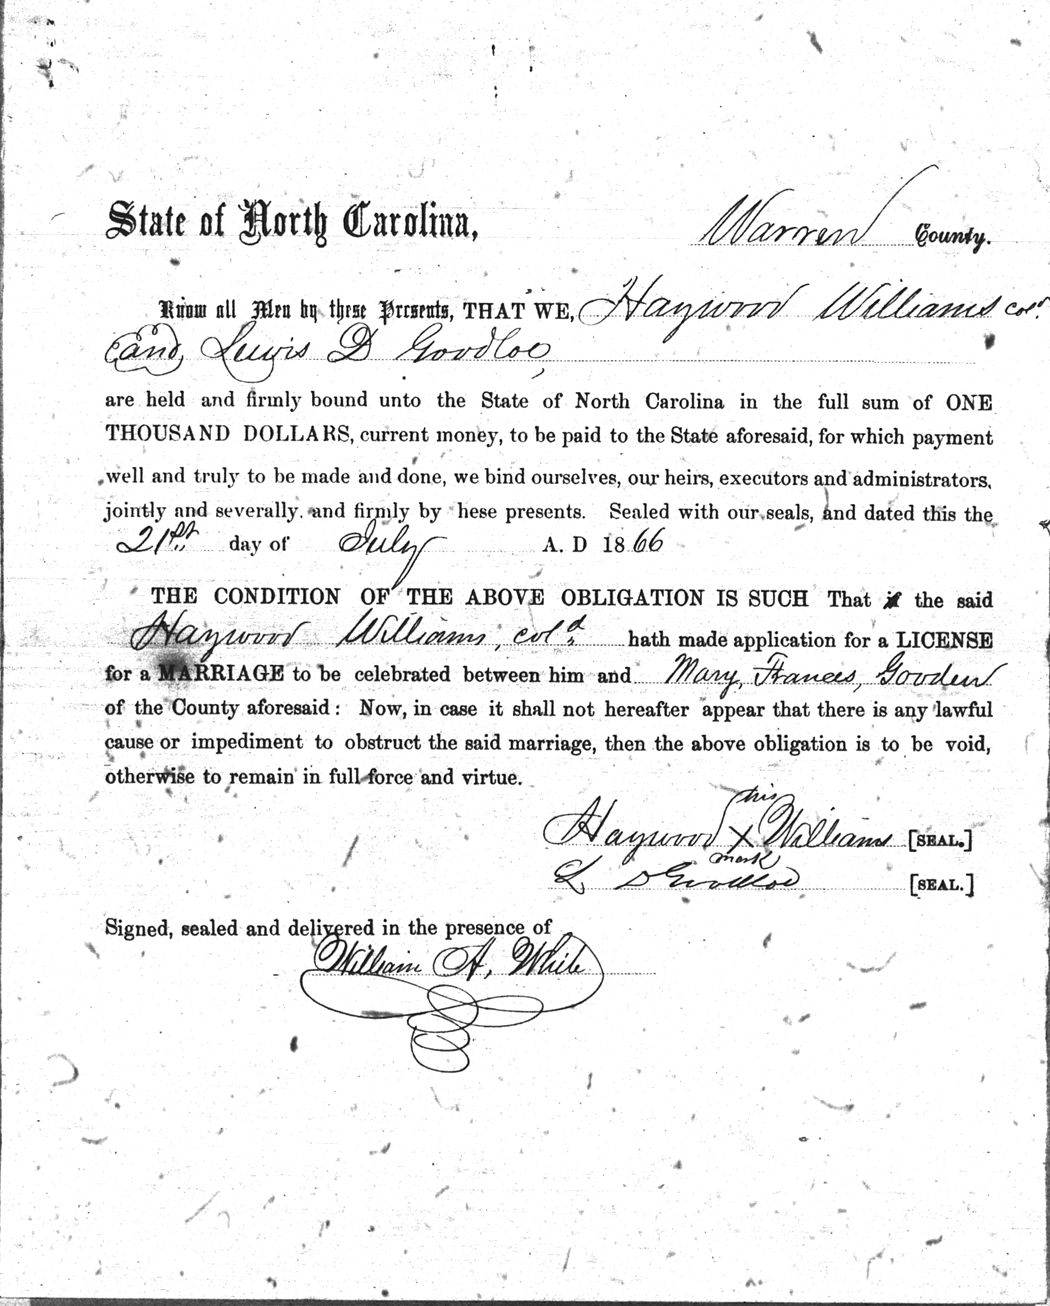 State of North Carolina, Warren County.
Know all Men by these Presents, THAT WE, Haywood Williams col.d
and, Lewis D Goodloe,
are held and firmly bound unto the State of North Carolina in the full sum of ONE
THOUSAND DOLLARS, current money, to be paid to the State aforesaid, for which payment
well and truly to be made and done, we bind ourselves, our heirs, executors and administrators,
jointly and severally. and firmly by hese presents. Sealed with our seals, and dated this the
21st day of July A. D 1866
THE CONDITION OF THE ABOVE OBLIGATION IS SUCH That if the said
Haywood Williams, col.d hath made application for a LICENSE
for a MARRIAGE to be celebrated between him and Mary, Frances, Gooden
of the County aforesaid: Now, in case it shall not hereafter appear that there is any lawful
cause or impediment to obstruct the said marriage, then the above obligation is to be void,
otherwise to remain in full force and virtue.
his
Haywood X Williams [SEAL.]
mark
L D Goodloe [SEAL.]
Signed, sealed and delivered in the presence of
William A, White